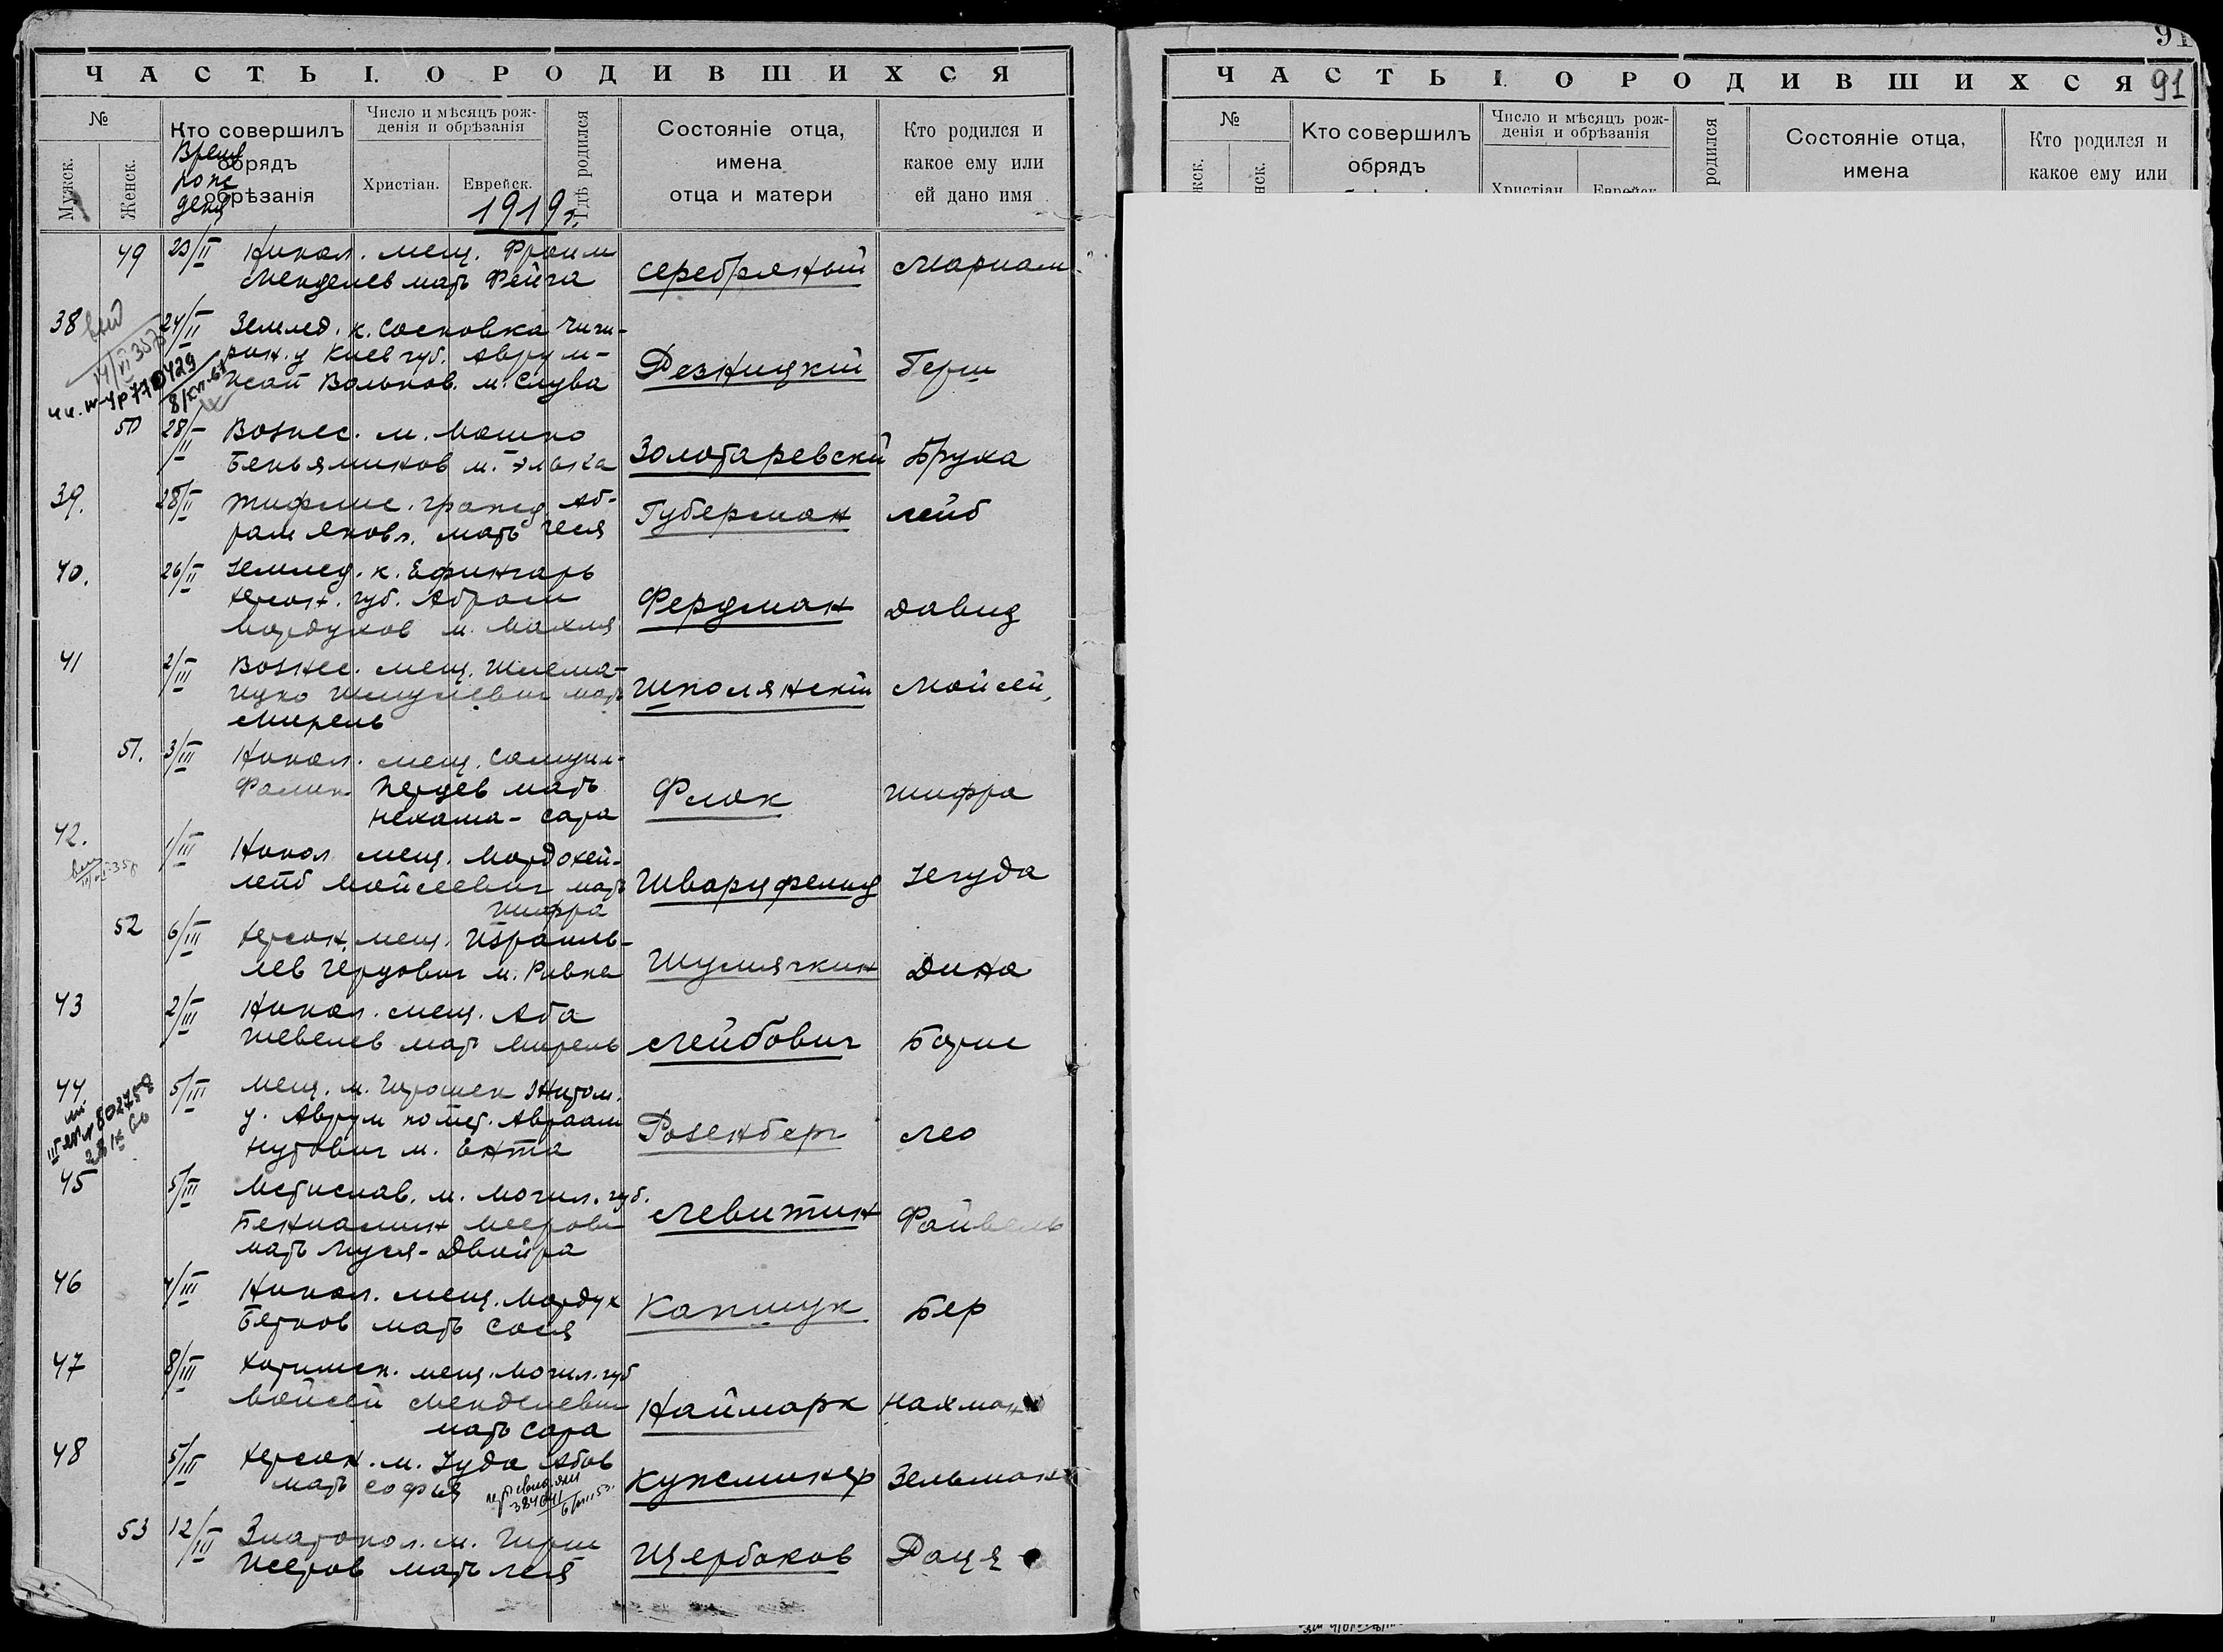 ЧАСТЬ I. О РОДИВШИХСЯ
№
Мужск.
Женск.
Кто совершилъ
обрядъ
обрѣзанія
Время
рож
дения
Число и мѣсяцъ рож-
денія и обрѣзанія
Христіан.
Еврейск.
1919 г.
Гдѣ родился
Состояніе отца,
имена
отца и матери
Кто родился и
какое ему или
ей дано имя
49 23/II Никол. мещ. Фроим
Менделев мать Фейга Серебряный Мариам
38 24/II Землед. к. Сосновка Чиги-
рин. у Киев губ. Аврум-
Исай Вольков. м. Слува Резницкий Герш
50 28/II Вознес. м. Мошко
Беньяминов м. Элька Золотаревский Бруха
39. 28/II Тифлис. гражд. Аб-
рам Яковл. мать Геня Губерман Лейб
40. 26/II Землед. к. Ефингарь
Херсон. губ. Абрам
Мордухов м. Махля Фердман Давид
41 2/III Вознес. мещ. Шлема-
Ицко Шмулевич мать Школянскій Мойсей
Мирель
51. 3/III Никол. мещ. Самуил-
Перцев мать
Нехама-Сара Флок Шифра
42. 1/III Никол мещ. Мордохей-
Лейб Мойсеевич мать Шварцфельд Иегуда
Шифра
52 6/III Херсон. мещ. Израиль-
Лев Герцович м. Ривка Шумячкин Дина
43 2/III Никол. мещ. Аба
Шевелев мать Мирель Лейбович Борис
44 5/III Мещ. м. Житом.
у. Аврум Авраам
Нутович м. Ента Розенберг Лео
45 5/III Мстислав. м. Могил. губ.
Бениамин Меерович
мать Муся-Двойра Левитин Файвель
46 4/III Никол. мещ. Мордух
Берков мать Сося Капшук Бер
47 8/III Хотимск. мещ. Могил. губ
Мойсей Менделевич
мать Сара Наймарк Нахман
48 5/III Херсон. м. Иуда Абов
мать София Кужминер Зельман
53 12/III Златопол. м. Герш
Исеров мать Лея Щербаков Рахя
91
ЧАСТЬ I. О РОДИВШИХСЯ 91
№
Кто совершилъ
обрядъ
Число и мѣсяцъ рож-
денія и обрѣзанія
Христіан.
Еврейск.
родился
Состояніе отца,
имена
Кто родился и
какое ему или